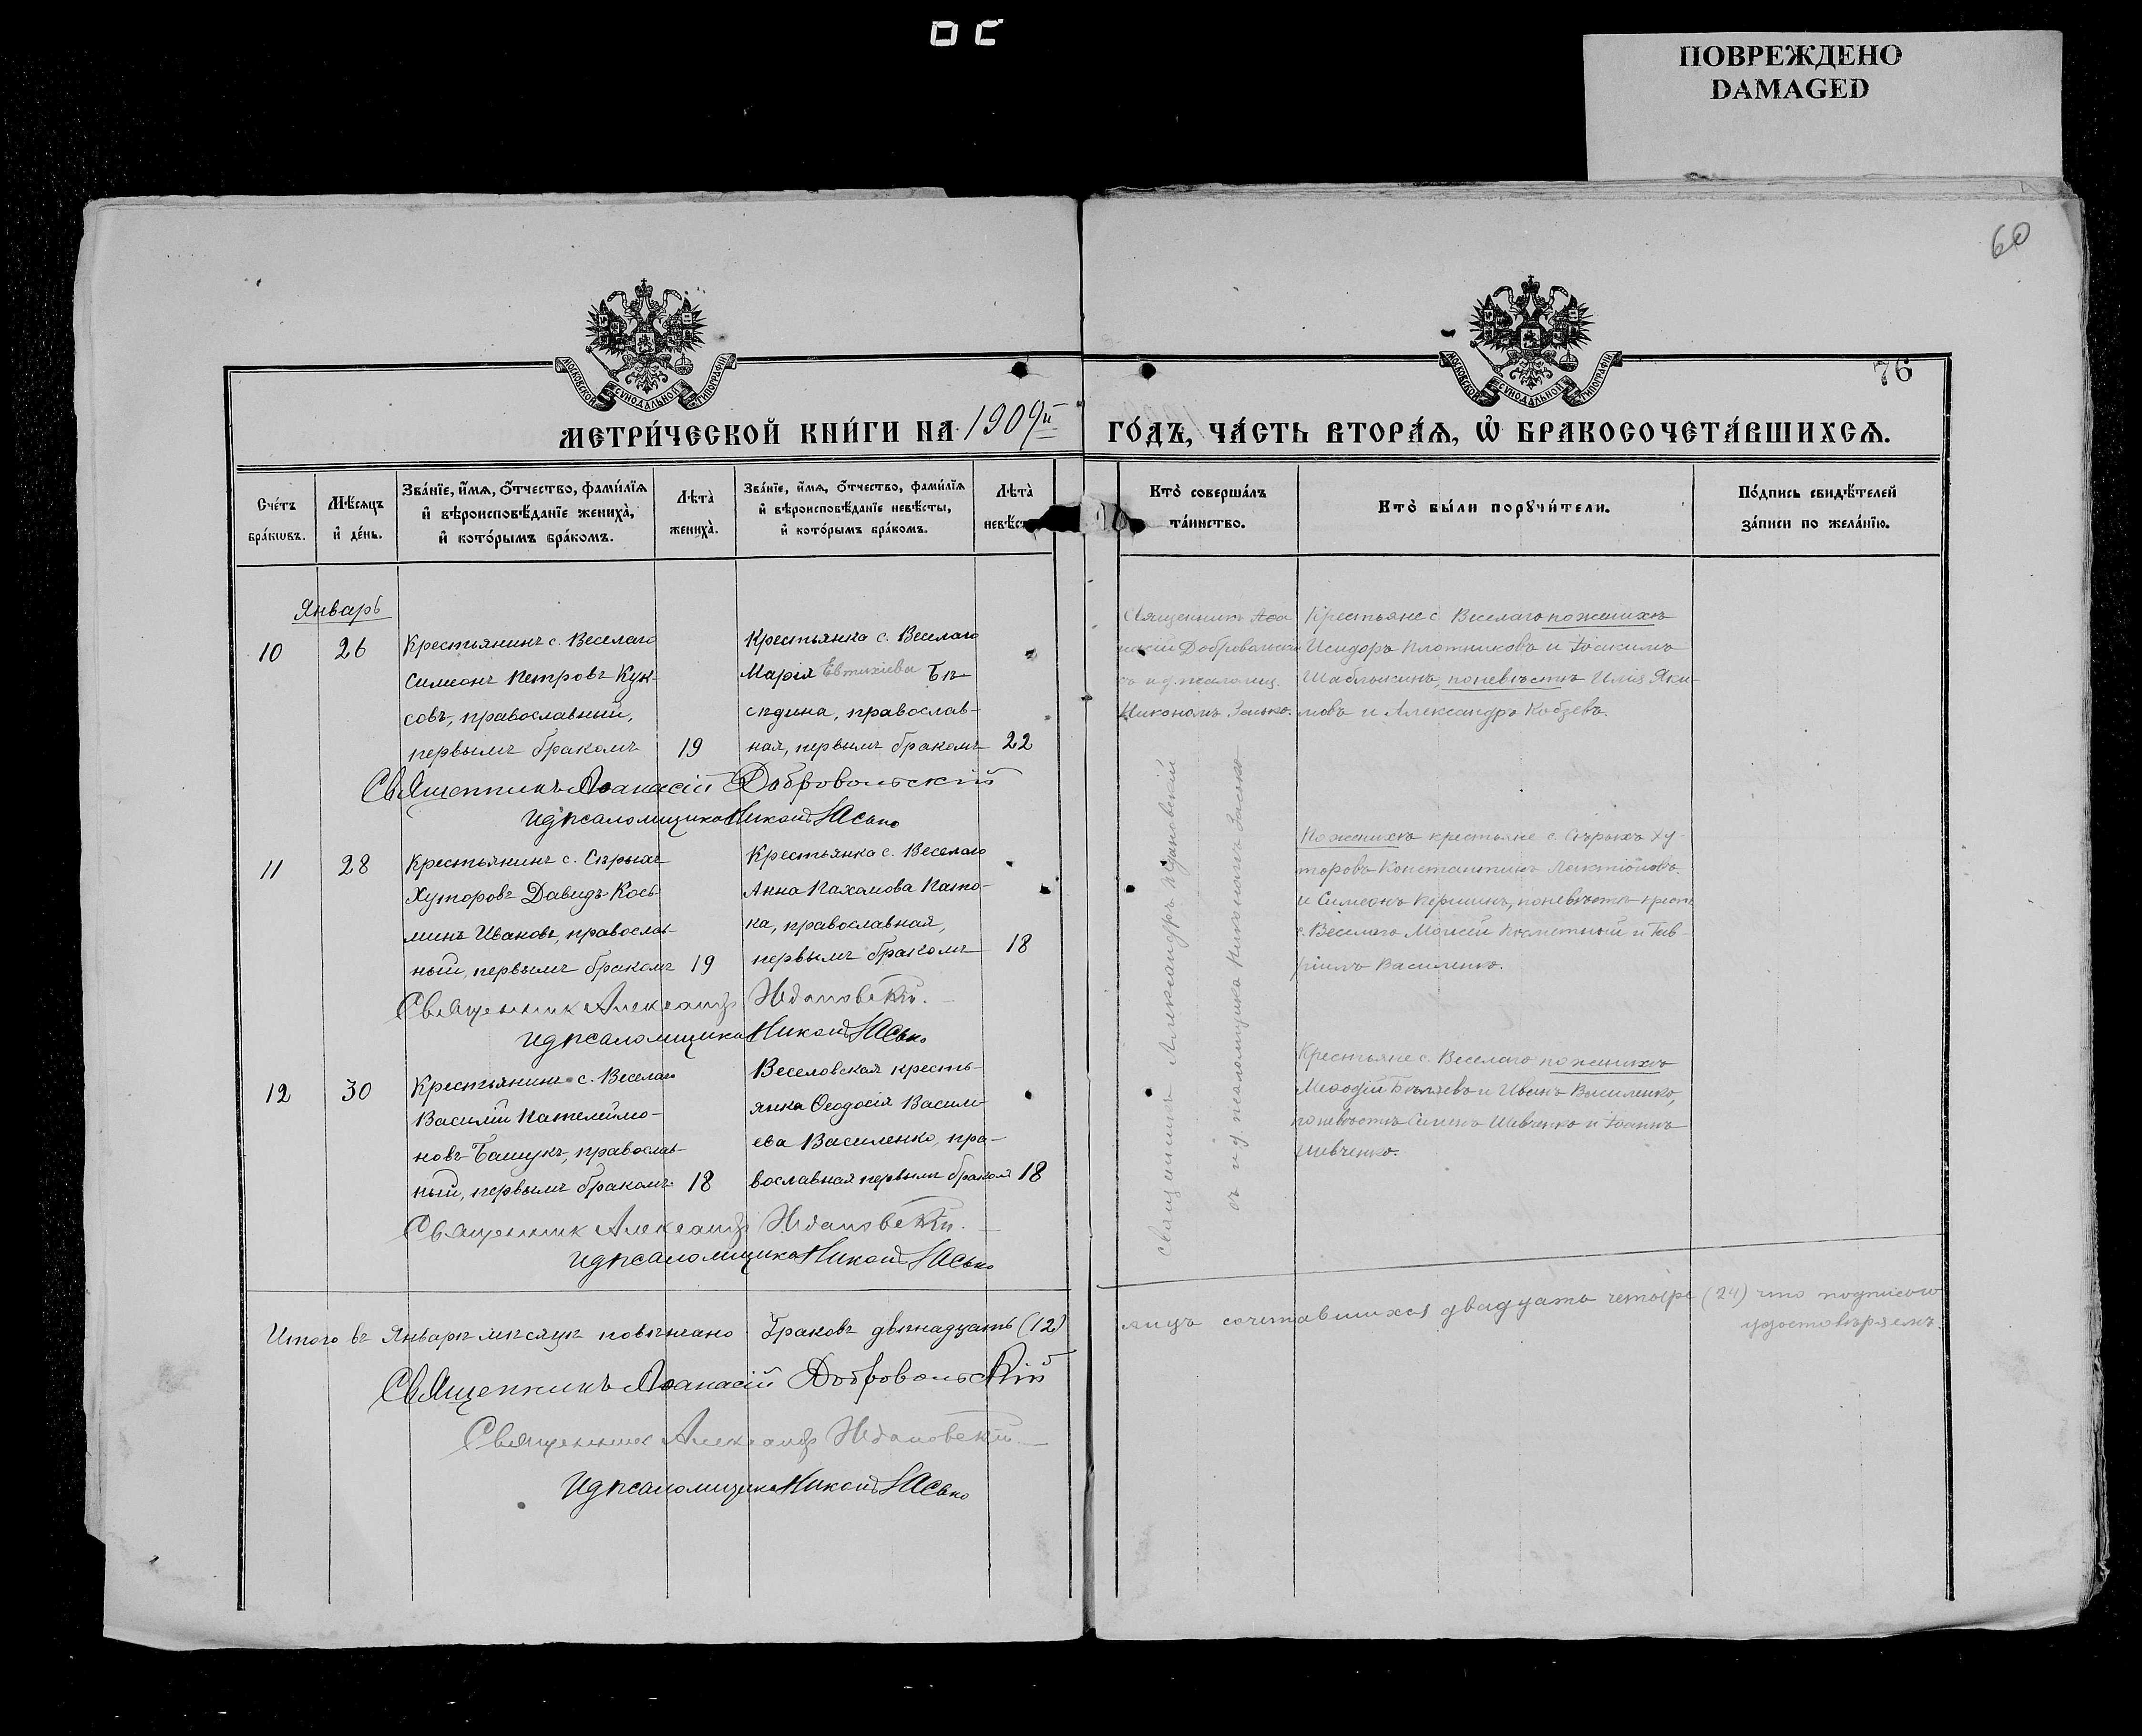 ПОВРЕЖДЕНО
DAMAGED
60
76
МОСКОВСКОЙ СѴНОДАЛЬНОЙ ТИПОГРАФІИ
МОСКОВСКОЙ СѴНОДАЛЬНОЙ ТИПОГРАФІИ
МЕТРИ́ЧЕСКОЙ КНИ́ГИ НА 1909й
ГО́ДЪ, ЧА́СТЬ ВТОРА́Ѧ, Ѡ҆ БРАКОСОЧЕТА́ВШИХСѦ.
Сче́тъ бра́кωвъ.
Мѣ́сѧцъ и҆ де́нь.
Зва́нїе, и҆́мѧ, ѻ҆́тчество, фами́лїѧ и҆ вѣроисповѣ́данїе жениха̀, и҆ кото́рымъ бра́комъ.
Лѣта̀ жениха̀.
Зва́нїе, и҆́мѧ, ѻ҆́тчество, фами́лїѧ и҆ вѣроисповѣ́данїе невѣ́сты, и҆ кото́рымъ бра́комъ.
Лѣта̀ невѣс
Кто̀ соверша́лъ та́инство.
Кто̀ бы́ли порꙋчи́тели.
По́дпись свидѣ́телей за́писи по жела́нїю.
Январь
10
26
Крестьянинъ с. Веселаго
Симеонъ Петровъ Кун-
совъ, православный,
первымъ бракомъ
19
Крестьянка с. Веселаго
Марія Евтихіева Бѣ-
сѣдина, православ-
ная, первымъ бракомъ
22
Священникъ Аѳа
насій Добровольскій
съ и.д. псаломщ.
Никономъ Засько.
Крестьяне с. Веселаго по женихѣ
Исидоръ Плотниковъ и Іоакимъ
Шаблыкинъ, по невѣстѣ Илія Яки-
мовъ и Александръ Кобзевъ.
Священникъ Аѳанасій Добровольскій
ид псаломщика Никонъ Засько
11
28
Крестьянинъ с. Сѣрыхъ
Хуторовъ Давидъ Кось-
минъ Ивановъ, православ-
ный, первымъ бракомъ
19
Крестьянка с. Веселаго
Анна Пахомова Пато-
ка, православная,
первымъ бракомъ
18
Священникъ Александръ Ждановскій
съ и д псаломщика Никономъ Засько
По женихѣ крестьяне с. Сѣрыхъ Ху-
торовъ Константинъ
и Симеонъ по невѣстѣ крест.
с. Веселаго Моисей и Гав-
ріилъ Василенко.
Священник Александр Ждановскій.
ид псаломщика Никонъ Засько
12
30
Крестьянинъ с. Веселаго
Василій Пателеимо-
новъ Башукъ, православ-
ный, первымъ бракомъ
18
Веселовская кресть-
янка Ѳеодосія Васили-
ева Василенко, пра-
вославная первымъ бракомъ
18
Крестьяне с. Веселаго по женихѣ
Меѳодій Бѣляевъ и Иванъ Василенко,
по невѣстѣ Симонъ Шевченко и Іоаннъ
Шевченко.
Священник Александр Ждановскій.
ид псаломщика Никонъ Засько
Итого въ Январѣ мѣсяцѣ повѣнчано браковъ двѣнадцать (12)
лицъ сочетавшихся двадцать четыре (24) что подписью
удостовѣряемъ.
Священникъ Аѳанасій Добровольскій
Священник Александр Ждановскій
ид псаломщика Никонъ Засько